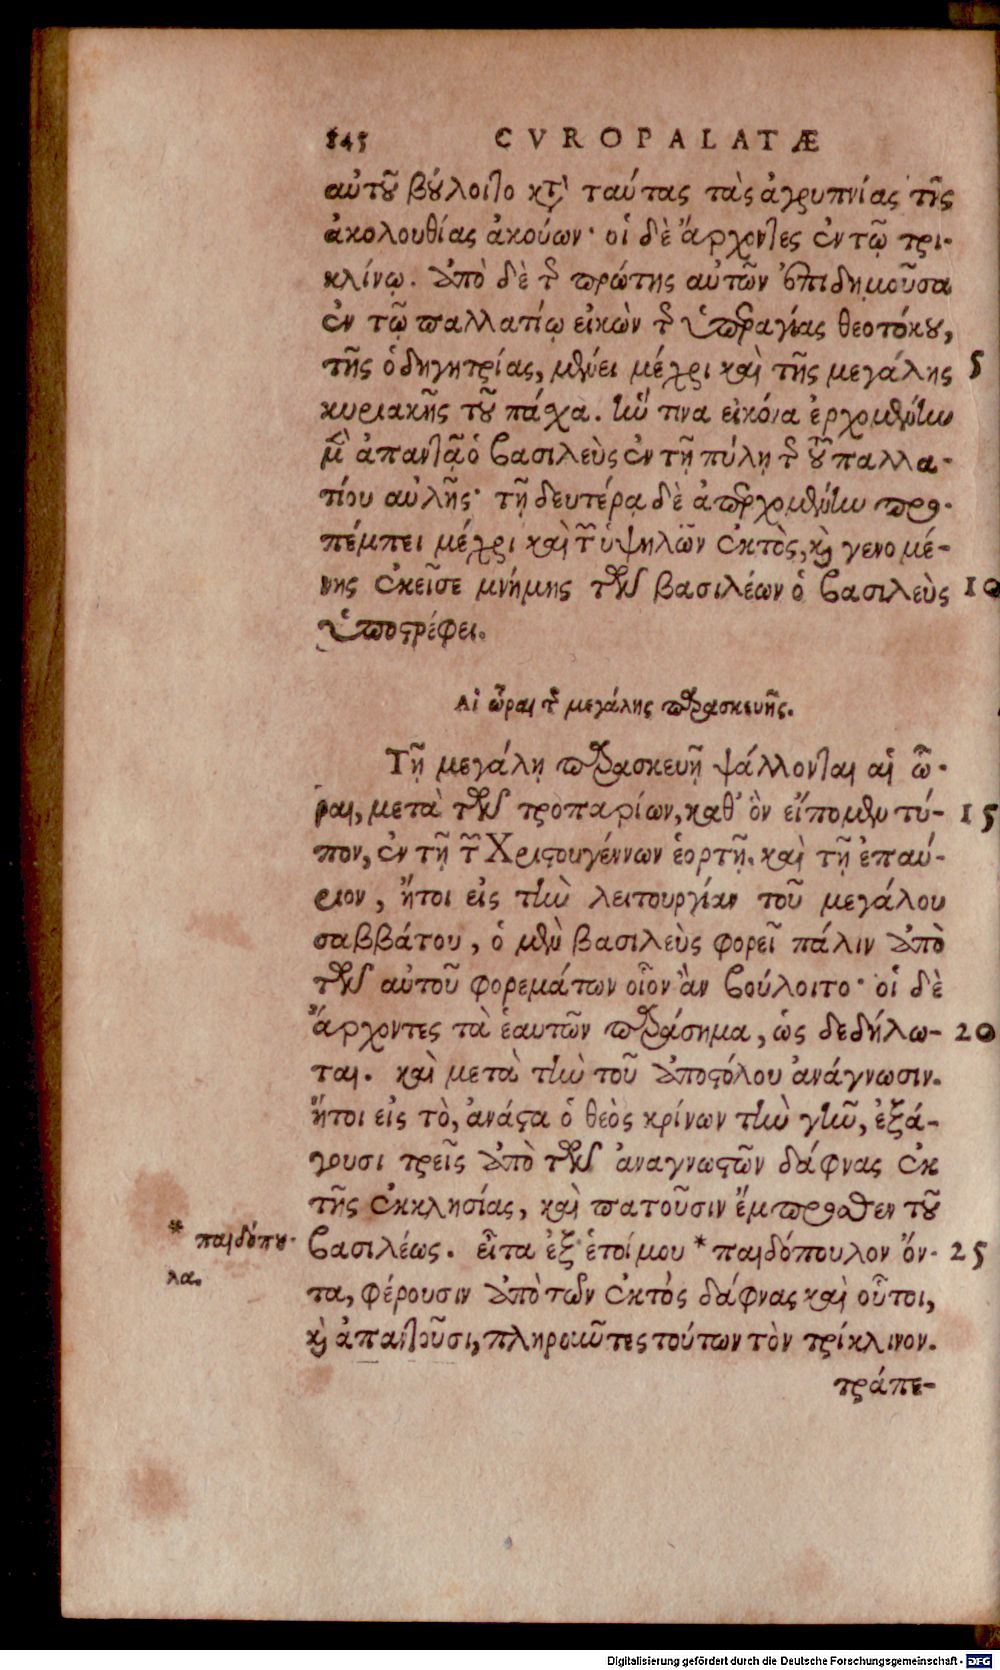 245 CVROPALATÆ
αὐτοῦ βούλοιτο κατὰ ταύτας τὰς ἀγρυπνίας τῆς
ἀκολουθίας ἀκούων· οἱ δὲ ἄρχοντες ἐν τῷ τρι-
κλίνῳ. ἀπὸ δὲ τῆς πρώτης αὐτῶν ἐπιδημοῦσα
ἐν τῷ παλλατίῳ εἰκὼν τῆς ὑπεραγίας θεοτόκου,
τῆς ὁδηγητρίας, μένει μέχρι καὶ τῆς μεγάλης 5
κυριακῆς τοῦ πάχα. ἥν τινα εἰκόνα ἐρχομένην
μὲν ἀπαντᾷ ὁ βασιλεὺς ἐν τῇ πύλῃ τῆς τοῦ παλλα-
τίου αὐλῆς· τῇ δευτέρα δὲ ἀπερχομένην προ-
πέμπει μέχρι καὶ τῶν ὑψηλῶν ἐκτὸς, καὶ γενομέ-
νης ἐκεῖσε μνήμης τῶν βασιλέων ὁ βασιλεὺς 10
ὑποστρέφει.
Αἱ ὧραι τῆς μεγάλης παρασκευῆς.
Τῇ μεγάλῃ παρασκευῇ ψάλλονται αἱ ὧ-
ραι, μετὰ τῶν τροπαρίων, καθ' ὃν εἴπομεν τύ- 15
πον, ἐν τῇ τῶν Χριστουγέννων ἑορτῇ. καὶ τῇ ἐπαύ-
ριον, ἤτοι εἰς τὴν λειτουργίαν τοῦ μεγάλου
σαββάτου, ὁ μὲν βασιλεὺς φορεῖ πάλιν ἀπὸ
τῶν αὐτοῦ φορεμάτων οἷον ἂν βούλοιτο· οἱ δὲ
ἄρχοντες τὰ ἑαυτῶν παράσημα, ὡς δεδήλω- 20
ται. καὶ μετὰ τὴν τοῦ ἀποστόλου ἀνάγνωσιν.
ἤτοι εἰς τὸ, ἀνάστα ὁ θεὸς κρίνων τὴν γῆν, ἐξά-
γουσι τρεῖς ἀπὸ τῶν ἀναγνωστῶν δάφνας ἐκ
τῆς ἐκκλησίας, καὶ πατοῦσιν ἔμπροσθεν τοῦ
βασιλέως. εἶτα ἐξ ἑτοίμου * παιδόπουλον ὄν- 25
τα, φέρουσιν ἀπὸ τῶν ἐκτὸς δάφνας καὶ οὗτοι,
καὶ ἀπαιτοῦσι, πληροῦντες τούτων τὸν τρίκλινον.
τράπε-
* παιδόπου-
λα.